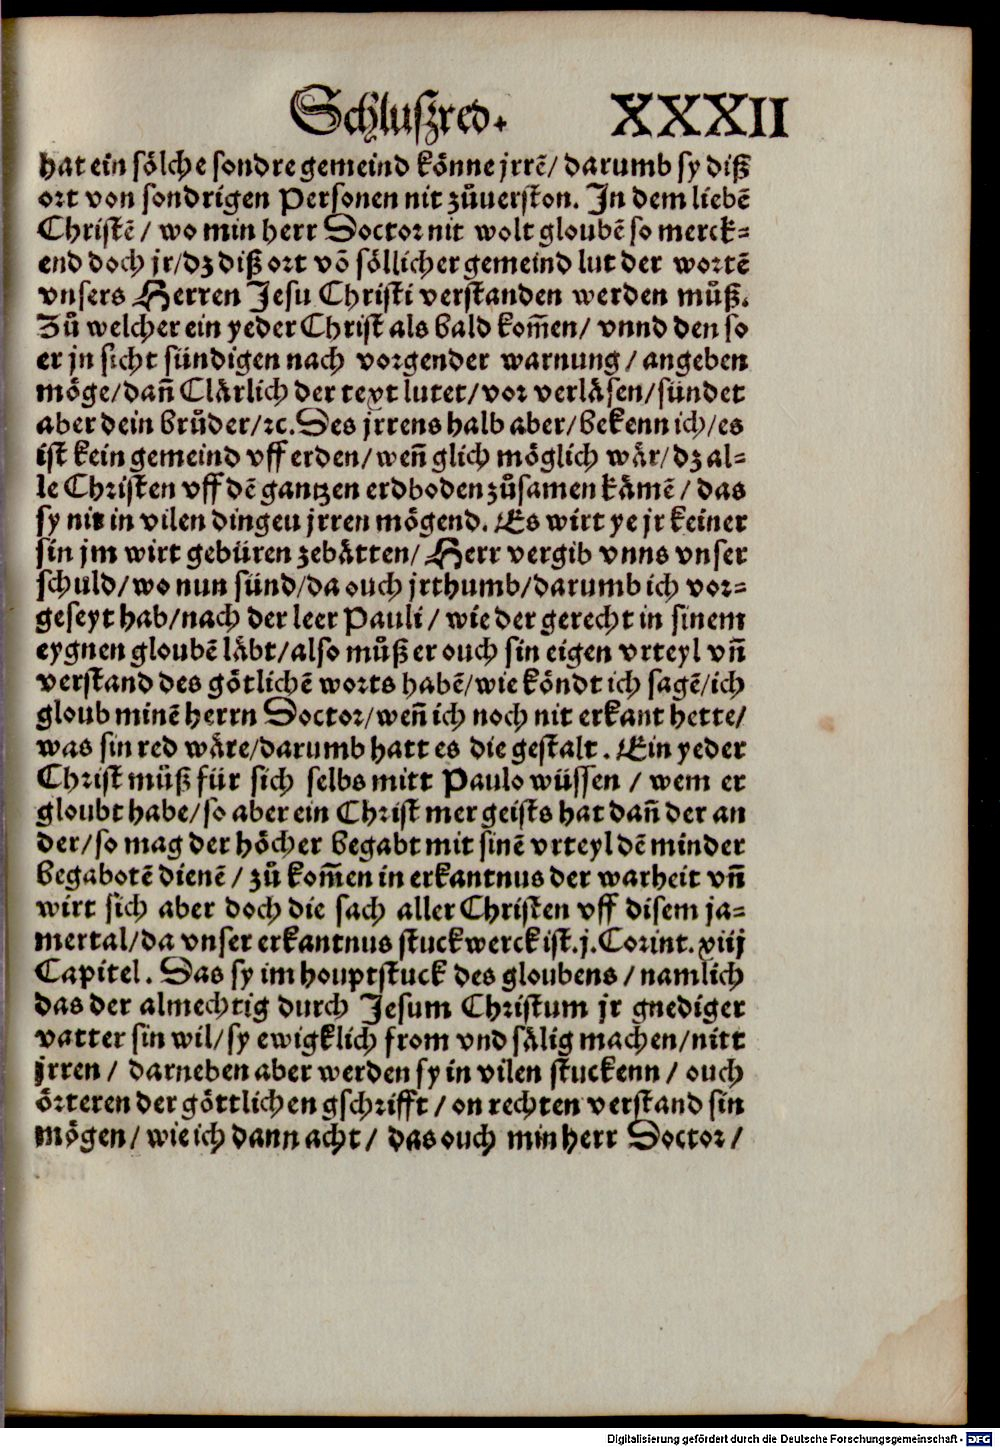 Schluszred. XXXII
hat ein sölche sondre gemeind könne jrrē/ darumb sy diß
ort von sondrigen Personen nit zůuerston. In dem liebē
Christē/ wo min herr Doctor nit wolt gloubē so merck-
end doch jr/dz diß ort vō söllicher gemeind lut der wortē
vnsers Herren Jesu Christi verstanden werden můß.
Zů welcher ein yeder Christ als bald kom̄en/ vnnd den so
er jn sicht sündigen nach vorgender warnung/ angeben
möge/dan̄ Clärlich der text lutet/vor verläsen/sündet
aber dein brůder/ꝛc. Des jrrens halb aber/bekenn ich/es
ist kein gemeind vff erden/wen̄ glich möglich wär/dz al-
le Christen vff dē gantzen erdboden zůsamen kämē/ das
sy nit in vilen dingen jrren mögend. Es wirt ye jr keiner
sin jm wirt gebüren zebätten/ Herr vergib vnns vnser
schuld/wo nun sünd/da ouch jrthumb/darumb ich vor-
geseyt hab/nach der leer Pauli/ wie der gerecht in sinem
eygnen gloubē läbt/also můß er ouch sin eigen vrteyl vn̄
verstand des götlichē worts habē/wie köndt ich sagē/ich
gloub minē herrn Doctor/wen̄ ich noch nit erkant hette/
was sin red wäre/darumb hatt es die gestalt. Ein yeder
Christ můß für sich selbs mitt Paulo wüssen / wem er
gloubt habe/so aber ein Christ mer geists hat dan̄ der an
der/so mag der höcher begabt mit sinē vrteyl dē minder
begabotē dienē/ zů kom̄en in erkantnus der warheit vn̄
wirt sich aber doch die sach aller Christen vff disem ja-
mertal/da vnser erkantnus stuckwerck ist.j.Corint.xiij
Capitel. Das sy im houptstuck des gloubens/ namlich
das der almechtig durch Jesum Christum jr gnediger
vatter sin wil/sy ewigklich from vnd sälig machen/nitt
jrren/ darneben aber werden sy in vilen stuckenn/ ouch
örteren der göttlichen gschrifft/ on rechten verstand sin
mögen/ wie ich dann acht/ das ouch min herr Doctor/
Digitalisierung gefördert durch die Deutsche Forschungsgemeinschaft - DFG